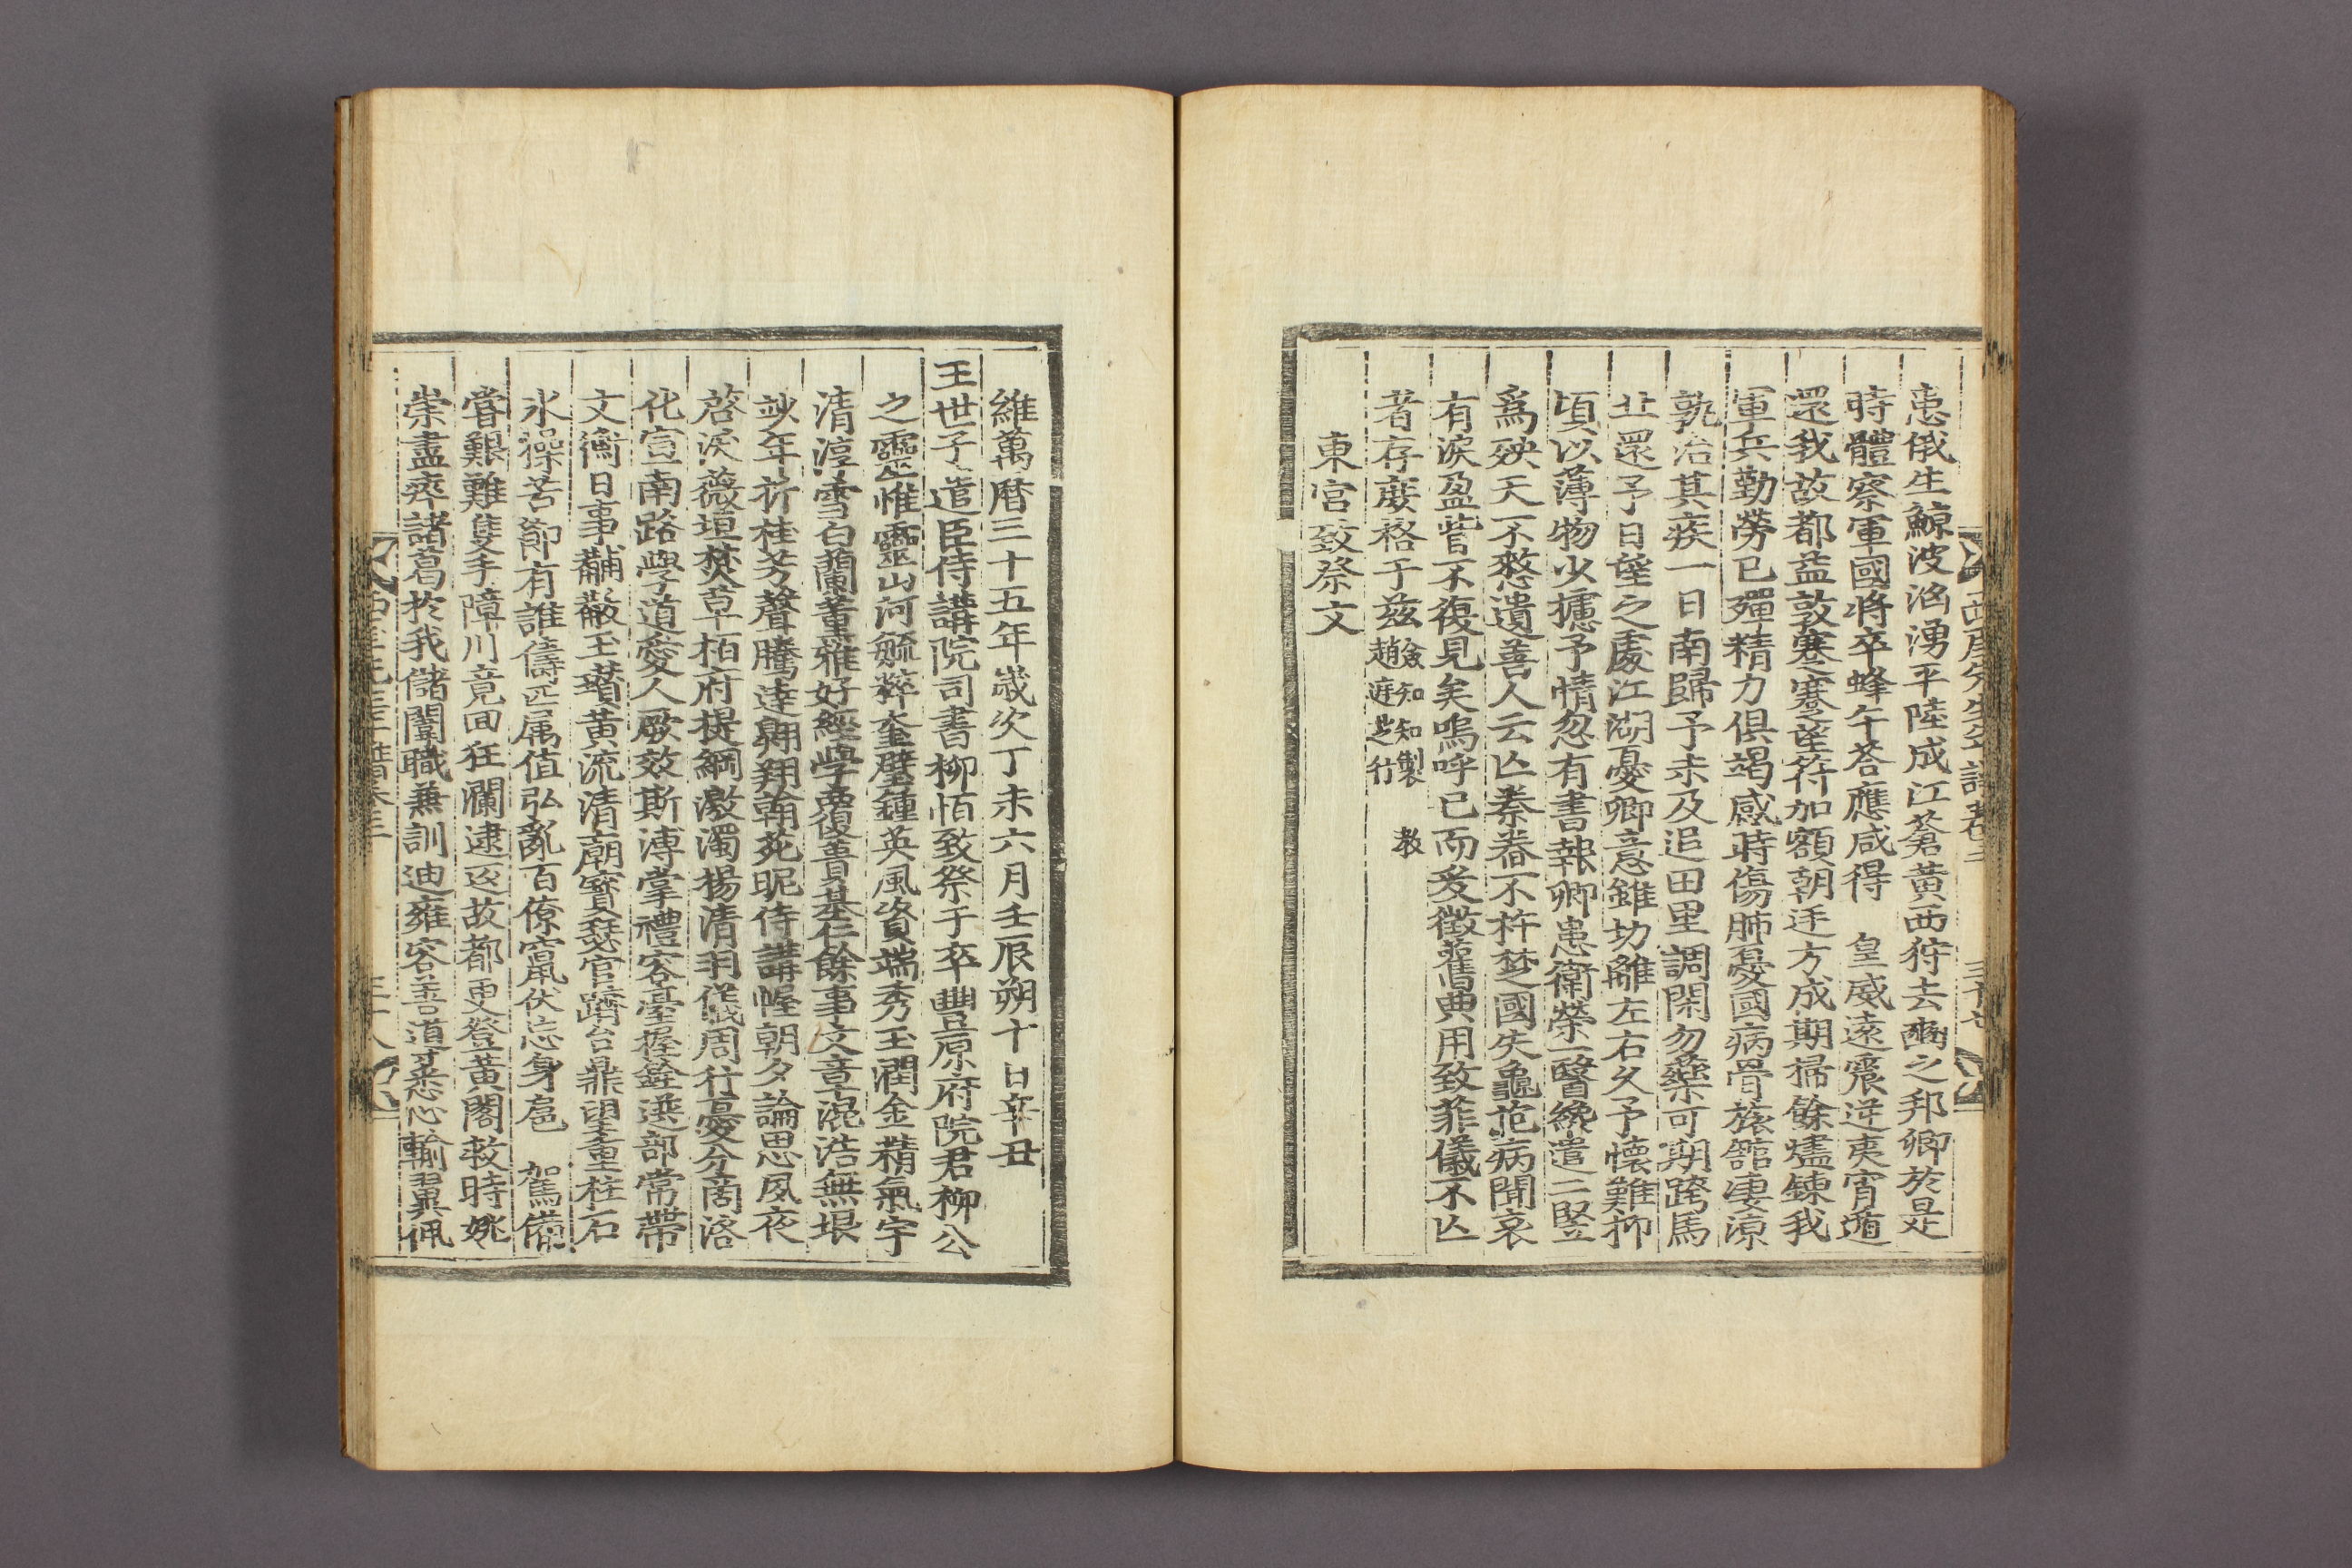 西厓先生年譜卷三 三十七
患俄生鯨波洶湧平陸成江蒼黃西狩去豳之邦卿於是
時體察軍國將卒蜂午答應咸得 皇威遠震逆夷宵遁
還我故都益敦蹇蹇望符加額朝廷方成期掃餘燼鍊我
軍兵勤勞已殫精力俱竭感時傷肺憂國病骨旅館凄涼
孰治其疾一日南歸予未及追田里調閑勿藥可期跨馬
北還予日望之處江湖憂卿意雖切離左右久予懷難抑
頃以薄物少攄予情忽有書報卿患衛榮一醫纔遣二竪
爲殃天不憖遺善人云亾秦舂不杵楚國失龜昔病聞哀
有淚盈眥不復見矣嗚呼已而爰徵舊典用致菲儀不亾
者存庶格于玆僉知知製 教
趙庭芝行
東宮致祭文
維萬曆三十五年歲次丁未六月壬辰朔十日辛丑
王世子遣臣侍講院司書柳恒致祭于卒豐原府院君柳公
之靈惟靈山河毓粹奎璧鍾英風資端秀玉潤金精氣宇
清淳雪白蘭薰雅好經學專複蕢基仁餘事文章混浩無垠
玅年折桂芳聲騰達翺翔翰苑昵侍講幄朝夕論思夙夜
啓沃薇垣焚草栢府提綱激濁揚清羽儀周行憂分商洛
化宣南路學道愛人厥效斯溥掌禮容臺握銓選部常帶
文衡日事黼黻玉瓚黃流清廟寶瑟官躋台鼎望重柱石
氷操苦節有誰儔匹属值弘亂百僚竄伏忘身扈 駕備
嘗艱難隻手障川竟回狂瀾逮返故都更登黃閣救時姚
崇盡瘁諸葛於我儲闈職兼訓迪雍容善導悉心輸翼佩
西厓先生年譜卷三 三十八